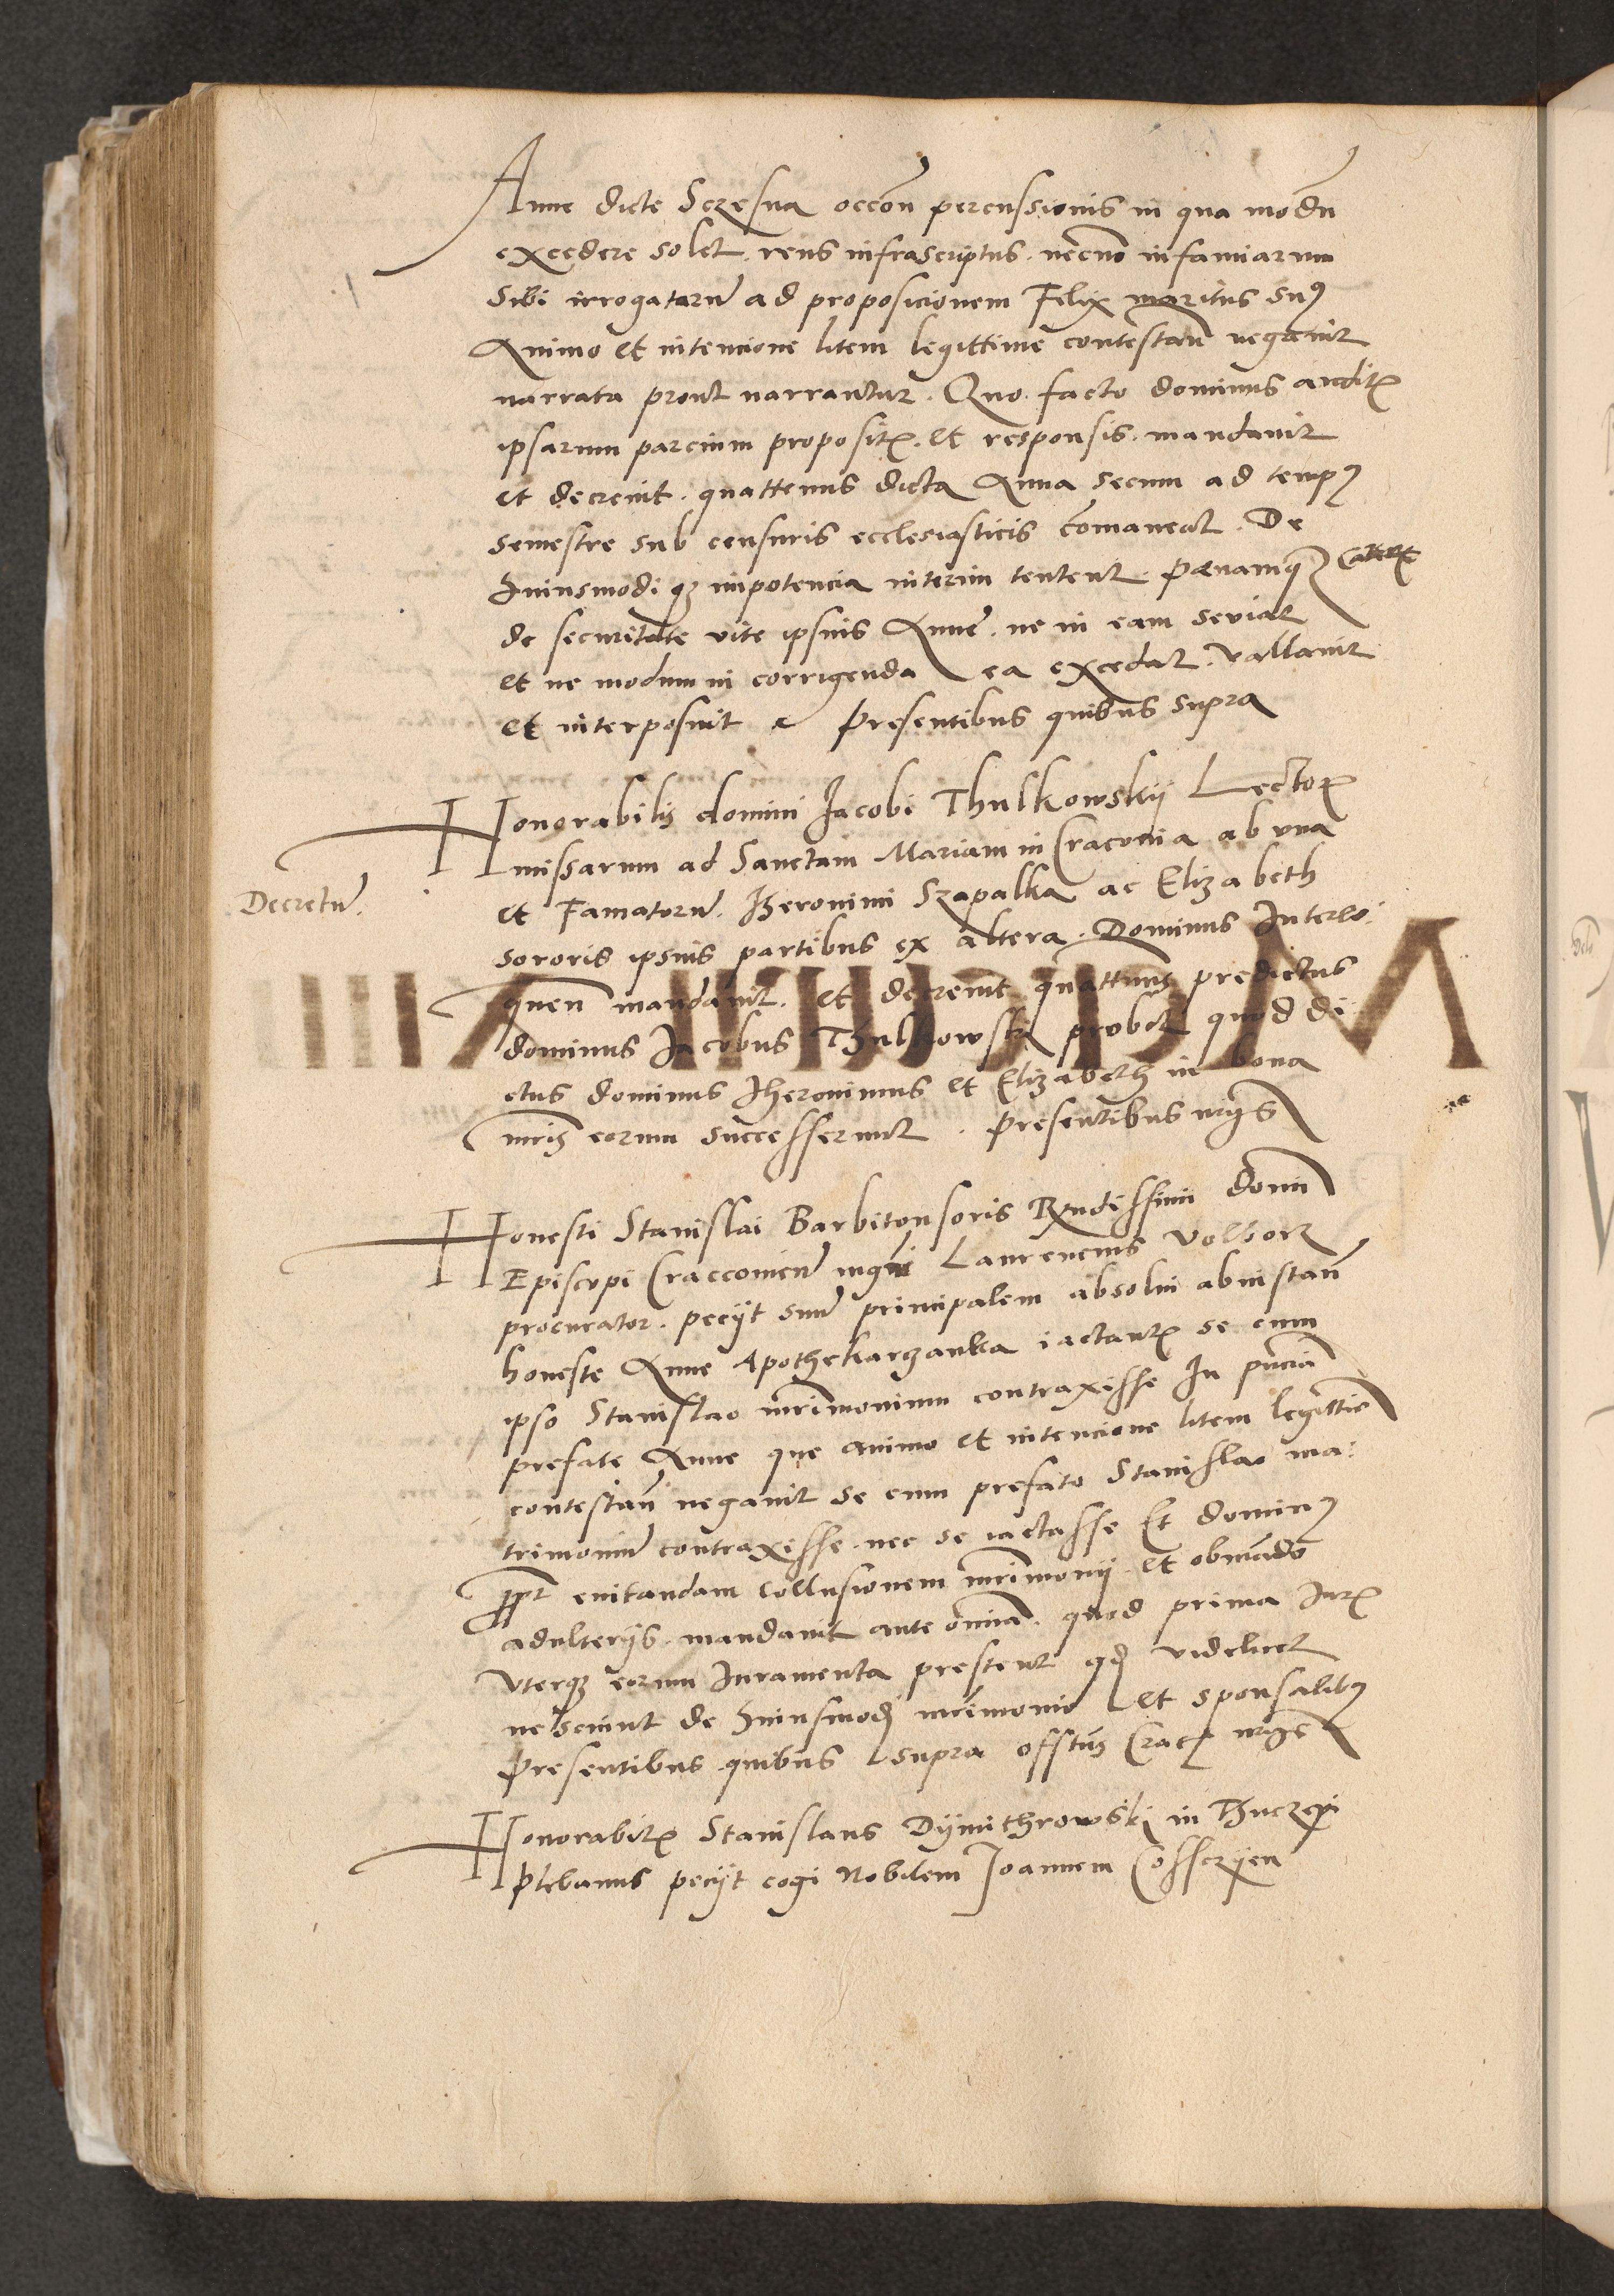 Anne dicte Sczesna occōn percussionis in qua modū
excedere solet. reus infrascriptus. necnō infamiarum
Sibi irrogatarū ad proposicionem Felix maritus suꝰ
Animo et intencione litem legittime contestan̄ negauit
narrata prout narrantur. Quo facto dominus auditꝭ
ipsarum parcium propositꝭ. et responsis. mandauit
et decreuit. quattenus dicta Anna secum ad tempꝰ
semestre sub censuris ecclesiasticis cōmaneat. De
huiusmodi qꝫ impotencia interim tentent. Penamqꝫ
de securitate vite ipsius Anne. ne in eam seviat
et ne modum in corrigenda ea excedat. vallauit
et interposuit Presentibus quibus supra
Honorabilꝭ domini Jacobi Thulkowskij Lectorꝭ
missarum ad Sanctam Mariam in Cracouia ab vna
Decretū.
et Famatorū. Hieronimi Szapalka ac Elizabeth
sororis ipsius partibus ex altera. Dominus Interlo:
quen̄ mandauit. et decreuit quattenus predictus
dominus Jacobus Thulkowski probet quod di
ctus dominus Jheronimus et Elizabeth in bona
mr̄is eorum successerunt. Presentibus
Honesti Stanislai Barbitonsoris Rn̄dissimi domī
Episcopi Craccouien̄ Laurencius
procurator. peciit suū principalem absolui ab instan̄
honeste Anne Apothekarzanka iactantꝭ se cum
ipso Stanislao mr̄imonium contraxisse In pn̄cia
prefate Anne que animo et intencione litem legittīe
contestan̄ negauit se cum prefato Stanislao ma:
trimoniū contraxisse. nec se iactasse Et dominꝰ
ꝓpt euitandam collusionem mr̄imonij. et obuiādo
adulterijs. mandauit ante omnia. quod prima Jurꝭ
Vterqꝫ eorum Juramenta prestent qđ videlicet
nesciunt de huiusmodi mr̄imonio et sponsalibꝰ
Presentibus quibus supra
Honorabilꝭ Stanislaus Dymithrowski in Thuczępi
Plebanus peciit cogi Nobilem Joannem
MCCCCVIII